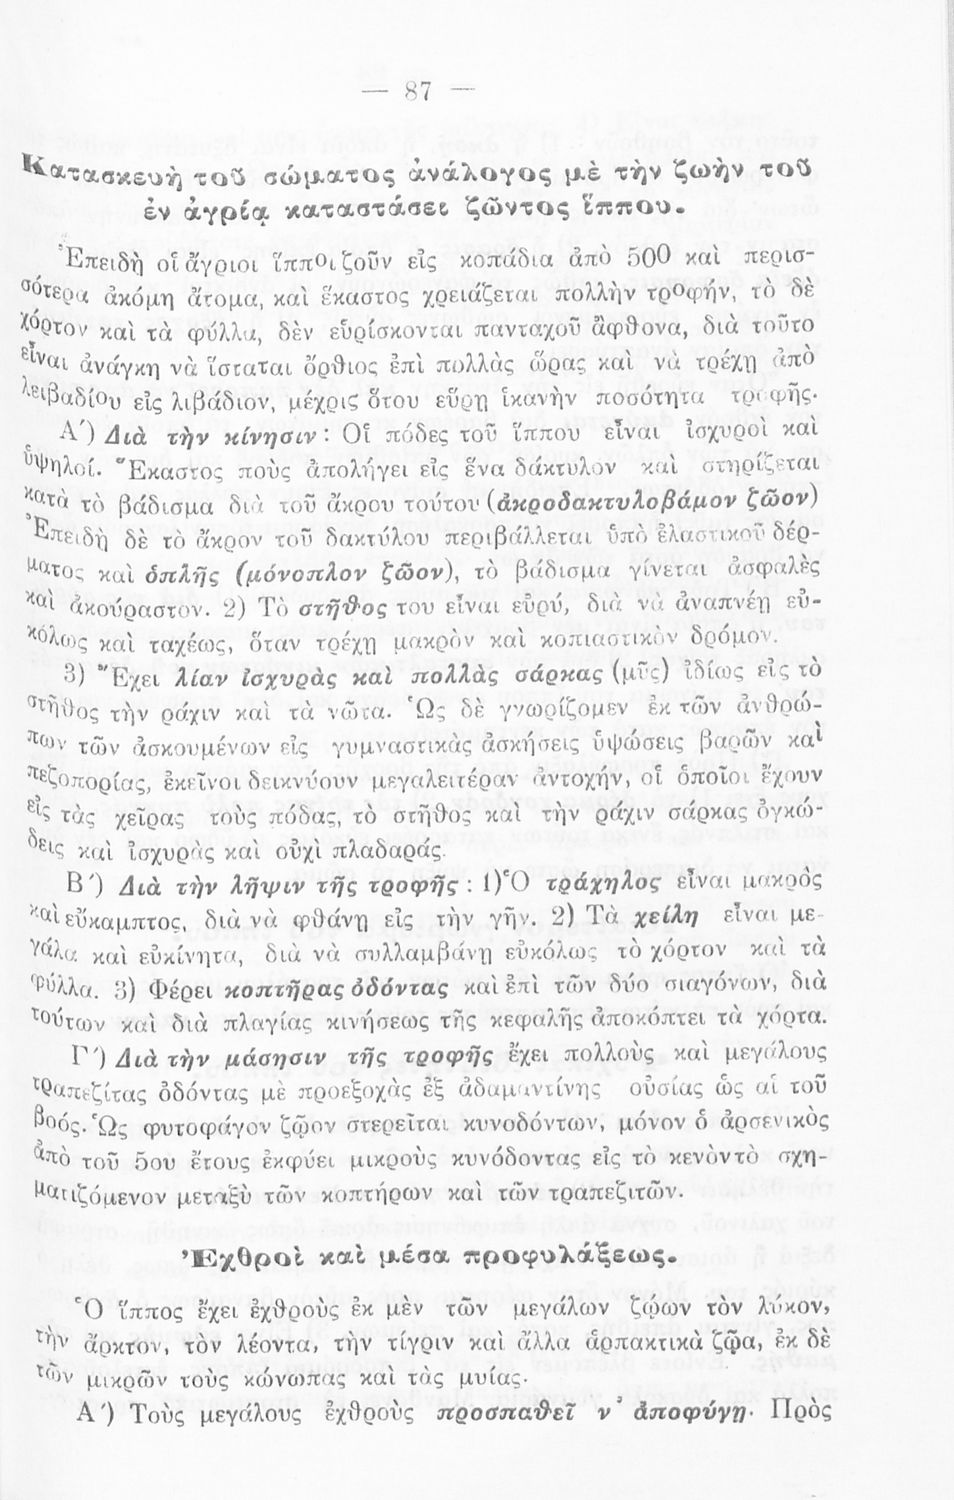 — 87 —
Κατασκευὴ τοῦ σώματος ἀνάλογος μὲ τὴν ζωὴν τοῦ
ἐν ἀγρίᾳ καταστάσει ζῶντος ἵππου.
Ἐπειδὴ οἱ ἄγριοι ἵπποι ζοῦν εἰς κοπάδια ἀπὸ 500 καὶ περισ-
σότερα ἀκόμη ἄτομα, καὶ ἕκαστος χρειάζεται πολλὴν τροφήν, τὸ δὲ
χόρτον καὶ τὰ φύλλα, δὲν εὑρίσκονται πανταχοῦ ἄφθονα, διὰ τοῦτο
εἶναι ἀνάγκη νὰ ἵσταται ὄρθιος ἐπὶ πολλὰς ὥρας καὶ νὰ τρέχῃ ἀπὸ
λειβαδίου εἰς λιβάδιον, μέχρις ὅτου εὕρῃ ἱκανὴν ποσότητα τροφῆς.
Α΄) Διὰ τὴν κίνησιν : Οἱ πόδες τοῦ ἵππου εἶναι ἰσχυροὶ καὶ
ὑψηλοί. Ἕκαστος ποὺς ἀπολήγει εἰς ἕνα δάκτυλον καὶ στηρίζεται
κατὰ τὸ βάδισμα διὰ τοῦ ἄκρου τούτου (ἀκροδακτυλοβάμον ζῶον)
Ἐπειδὴ δὲ τὸ ἄκρον τοῦ δακτύλου περιβάλλεται ὑπὸ ἐλαστικοῦ δέρ-
ματος καὶ ὁπλῆς (μόνοπλον ζῶον), τὸ βάδισμα γίνεται ἀσφαλὲς
καὶ ἀκούραστον. 2) Τὸ στῆθος του εἶναι εὐρύ, διὰ νὰ ἀναπνέῃ εὐ-
κόλως καὶ ταχέως, ὅταν τρέχῃ μακρὸν καὶ κοπιαστικὸν δρόμον.
3) Ἔχει λίαν ἰσχυρὰς καὶ πολλὰς σάρκας (μῦς) ἰδίως εἰς τὸ
στῆθος τὴν ράχιν καὶ τὰ νῶτα. Ὡς δὲ γνωρίζομεν ἐκ τῶν ἀνθρώ-
πων τῶν ἀσκουμένων εἰς γυμναστικὰς ἀσκήσεις ὑψώσεις βαρῶν καὶ
πεζοπορίας, ἐκεῖνοι δεικνύουν μεγαλειτέραν ἀντοχήν, οἱ ὁποῖοι ἔχουν
εἰς τὰς χεῖρας τοὺς πόδας, τὸ στῆθος καὶ τὴν ράχιν σάρκας ὀγκώ-
δεις καὶ ἰσχυρὰς καὶ οὐχὶ πλαδαράς.
Β΄) Διὰ τὴν λῆψιν τῆς τροφῆς : 1) Ὁ τράχηλος εἶναι μακρὸς
καὶ εὔκαμπτος, διὰ νὰ φθάνῃ εἰς τὴν γῆν. 2) Τὰ χείλη εἶναι με-
γάλα καὶ εὐκίνητα, διὰ νὰ συλλαμβάνῃ εὐκόλως τὸ χόρτον καὶ τὰ
φύλλα. 3) Φέρει κοπτῆρας ὀδόντας καὶ ἐπὶ τῶν δύο σιαγόνων, διὰ
τούτων καὶ διὰ πλαγίας κινήσεως τῆς κεφαλῆς ἀποκόπτει τὰ χόρτα.
Γ΄) Διὰ τὴν μάσησιν τῆς τροφῆς ἔχει πολλοὺς καὶ μεγάλους
τραπεζίτας ὀδόντας μὲ προεξοχὰς ἐξ ἀδαμαντίνης οὐσίας ὡς αἱ τοῦ
βοός. Ὡς φυτοφάγον ζῷον στερεῖται κυνοδόντων, μόνον ὁ ἀρσενικὸς
ἀπὸ τοῦ 5ου ἔτους ἐκφύει μικροὺς κυνόδοντας εἰς τὸ κενὸν τὸ σχη-
ματιζόμενον μεταξὺ τῶν κοπτήρων καὶ τῶν τραπεζιτῶν.
Ἐχθροὶ καὶ μέσα προφυλάξεως.
Ὁ ἵππος ἔχει ἐχθροὺς ἐκ μὲν τῶν μεγάλων ζῴων τὸν λύκον,
τὴν ἄρκτον, τὸν λέοντα, τὴν τίγριν καὶ ἄλλα ἁρπακτικὰ ζῷα, ἐκ δὲ
τῶν μικρῶν τοὺς κώνωπας καὶ τὰς μυίας.
Α΄) Τοὺς μεγάλους ἐχθροὺς προσπαθεῖ ν' ἀποφύγῃ. Πρὸς